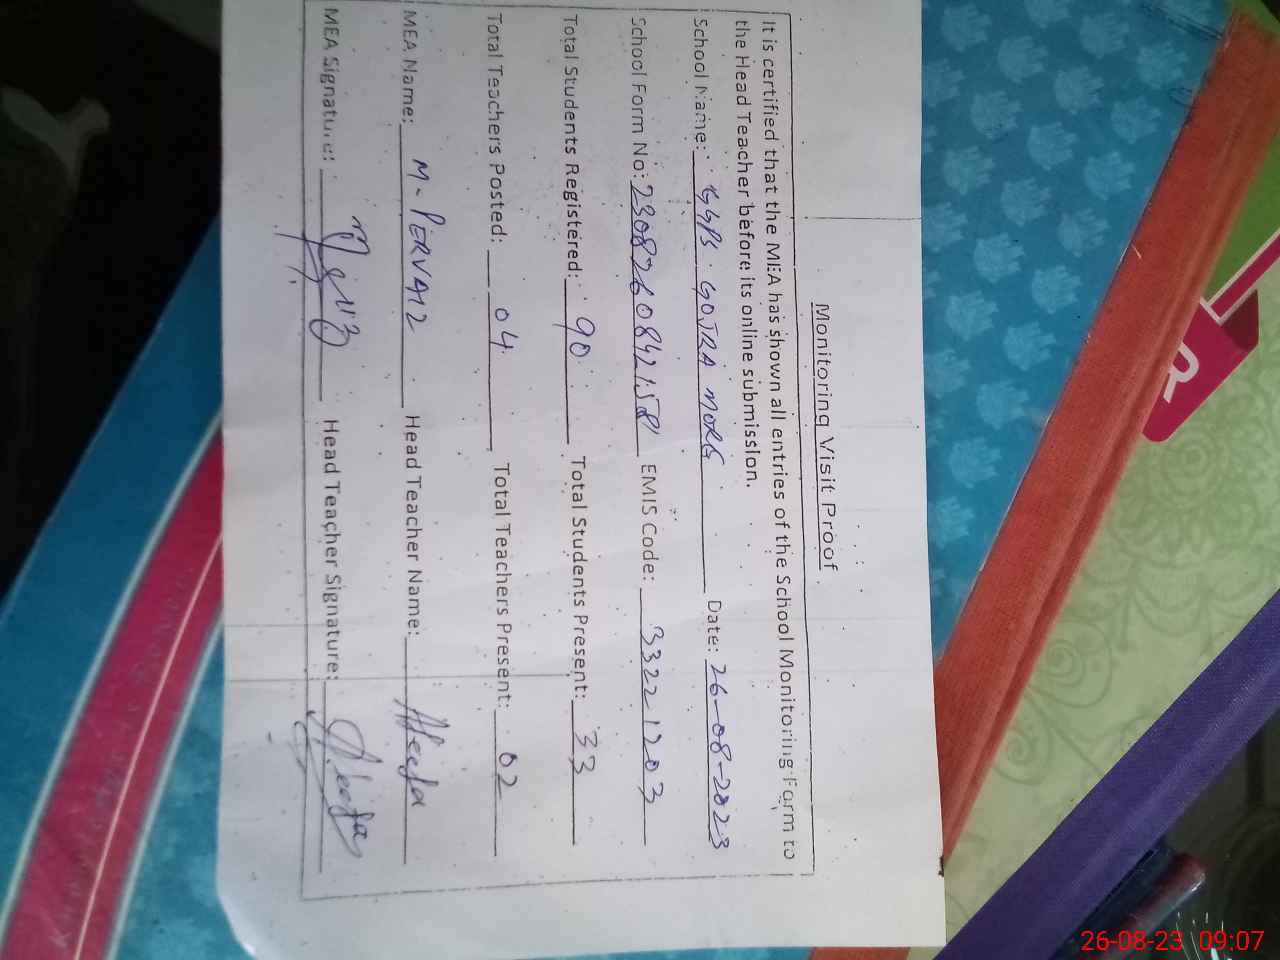 Monitoring Visit Proof
It is certified that the MEA has shown all entries of the School Monitoring Form to
the Head Teacher before its online submission.
School Name: GGPS GOJRA MORG Date: 26-08-2023
School Form No: 23082608421581 EMIS Code: 33221203
Total Students Registered: 90 Total Students Present: 33
Total Teachers Posted: 04 Total Teachers Present: 02
MEA Name: M. PERVAIZ Head Teacher Name:
MEA Signature: Head Teacher Signature:
R
26-08-23 09:07